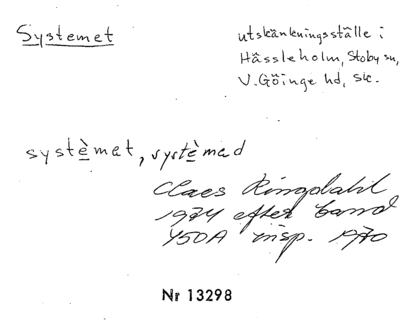 Systemet
utskänkningsställe i
Hässleholm, Stoby sn,
V. Göinge hd, Sk.
systèmet, systèmed
Claes Ringdahl
1974 efter band
450A insp. 1970
Nr 13298